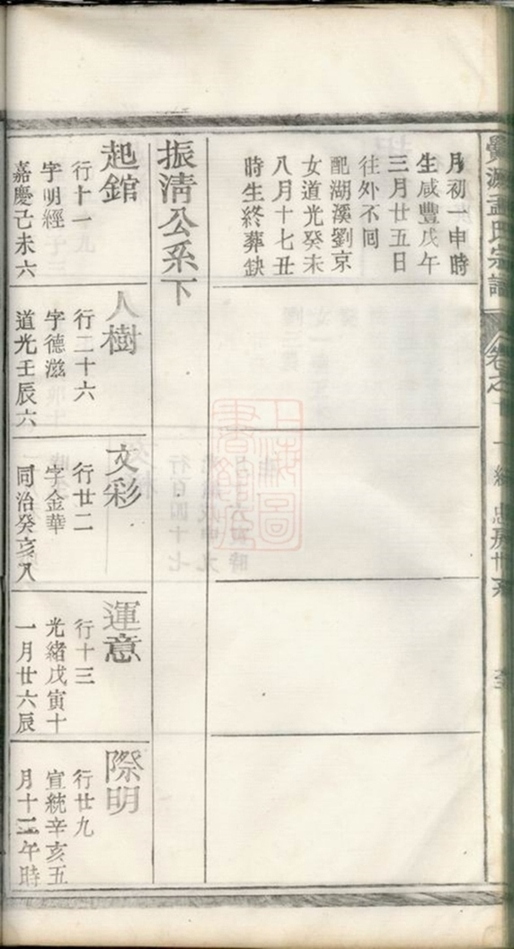 孟氏宗譜
卷之
月初一申時
生咸豐戊午
三月廿五日
往外不回
配湖溪劉京
女道光癸未
八月十七丑
時生終葬缺
振清公系下
起錧
行十一
字明經
嘉慶己未六
人樹
行二十六
字德滋
道光壬辰六
文彩
行廿二
字金華
同治癸亥八
運意
行十三
光緒戊寅十
一月廿六辰
際明
行廿九
宣統辛亥五
月十二午時